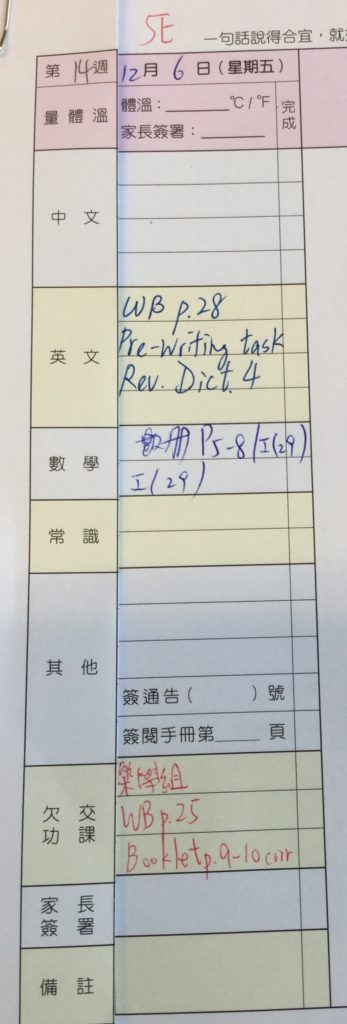 5E
一句話說得合宜，就
第 14 週 12 月 6 日（星期五）
量體溫 體溫：______ °C / °F 完成
家長簽署：______
中文
英文 WB p.28
Pre-writing task
Rev. Dict. 4
數學 數册 P5-8 / I(29)
I(29)
常識
其他
簽通告（　　）號
簽閱手冊第____ 頁
欠交功課
WB p.25
Booklet p.9-10 corr
家長簽署
備註